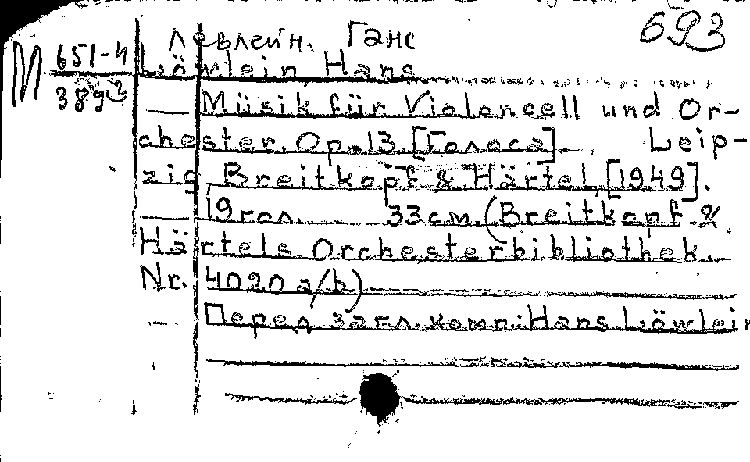 693
Левлейн. Ганс
М 651-4
389
Löwlein Hans
Musik für Violoncell und Or-
chester. Op. 13. [Голоса]. Leip-
zig Breitkopf & Härtel, [1949].
19 гол. 33 см. (Breitkopf &
Härtels Orchesterbibliothek.
Nr. 4020 a/b)
Перед загл. комп.: Hans Löwlein